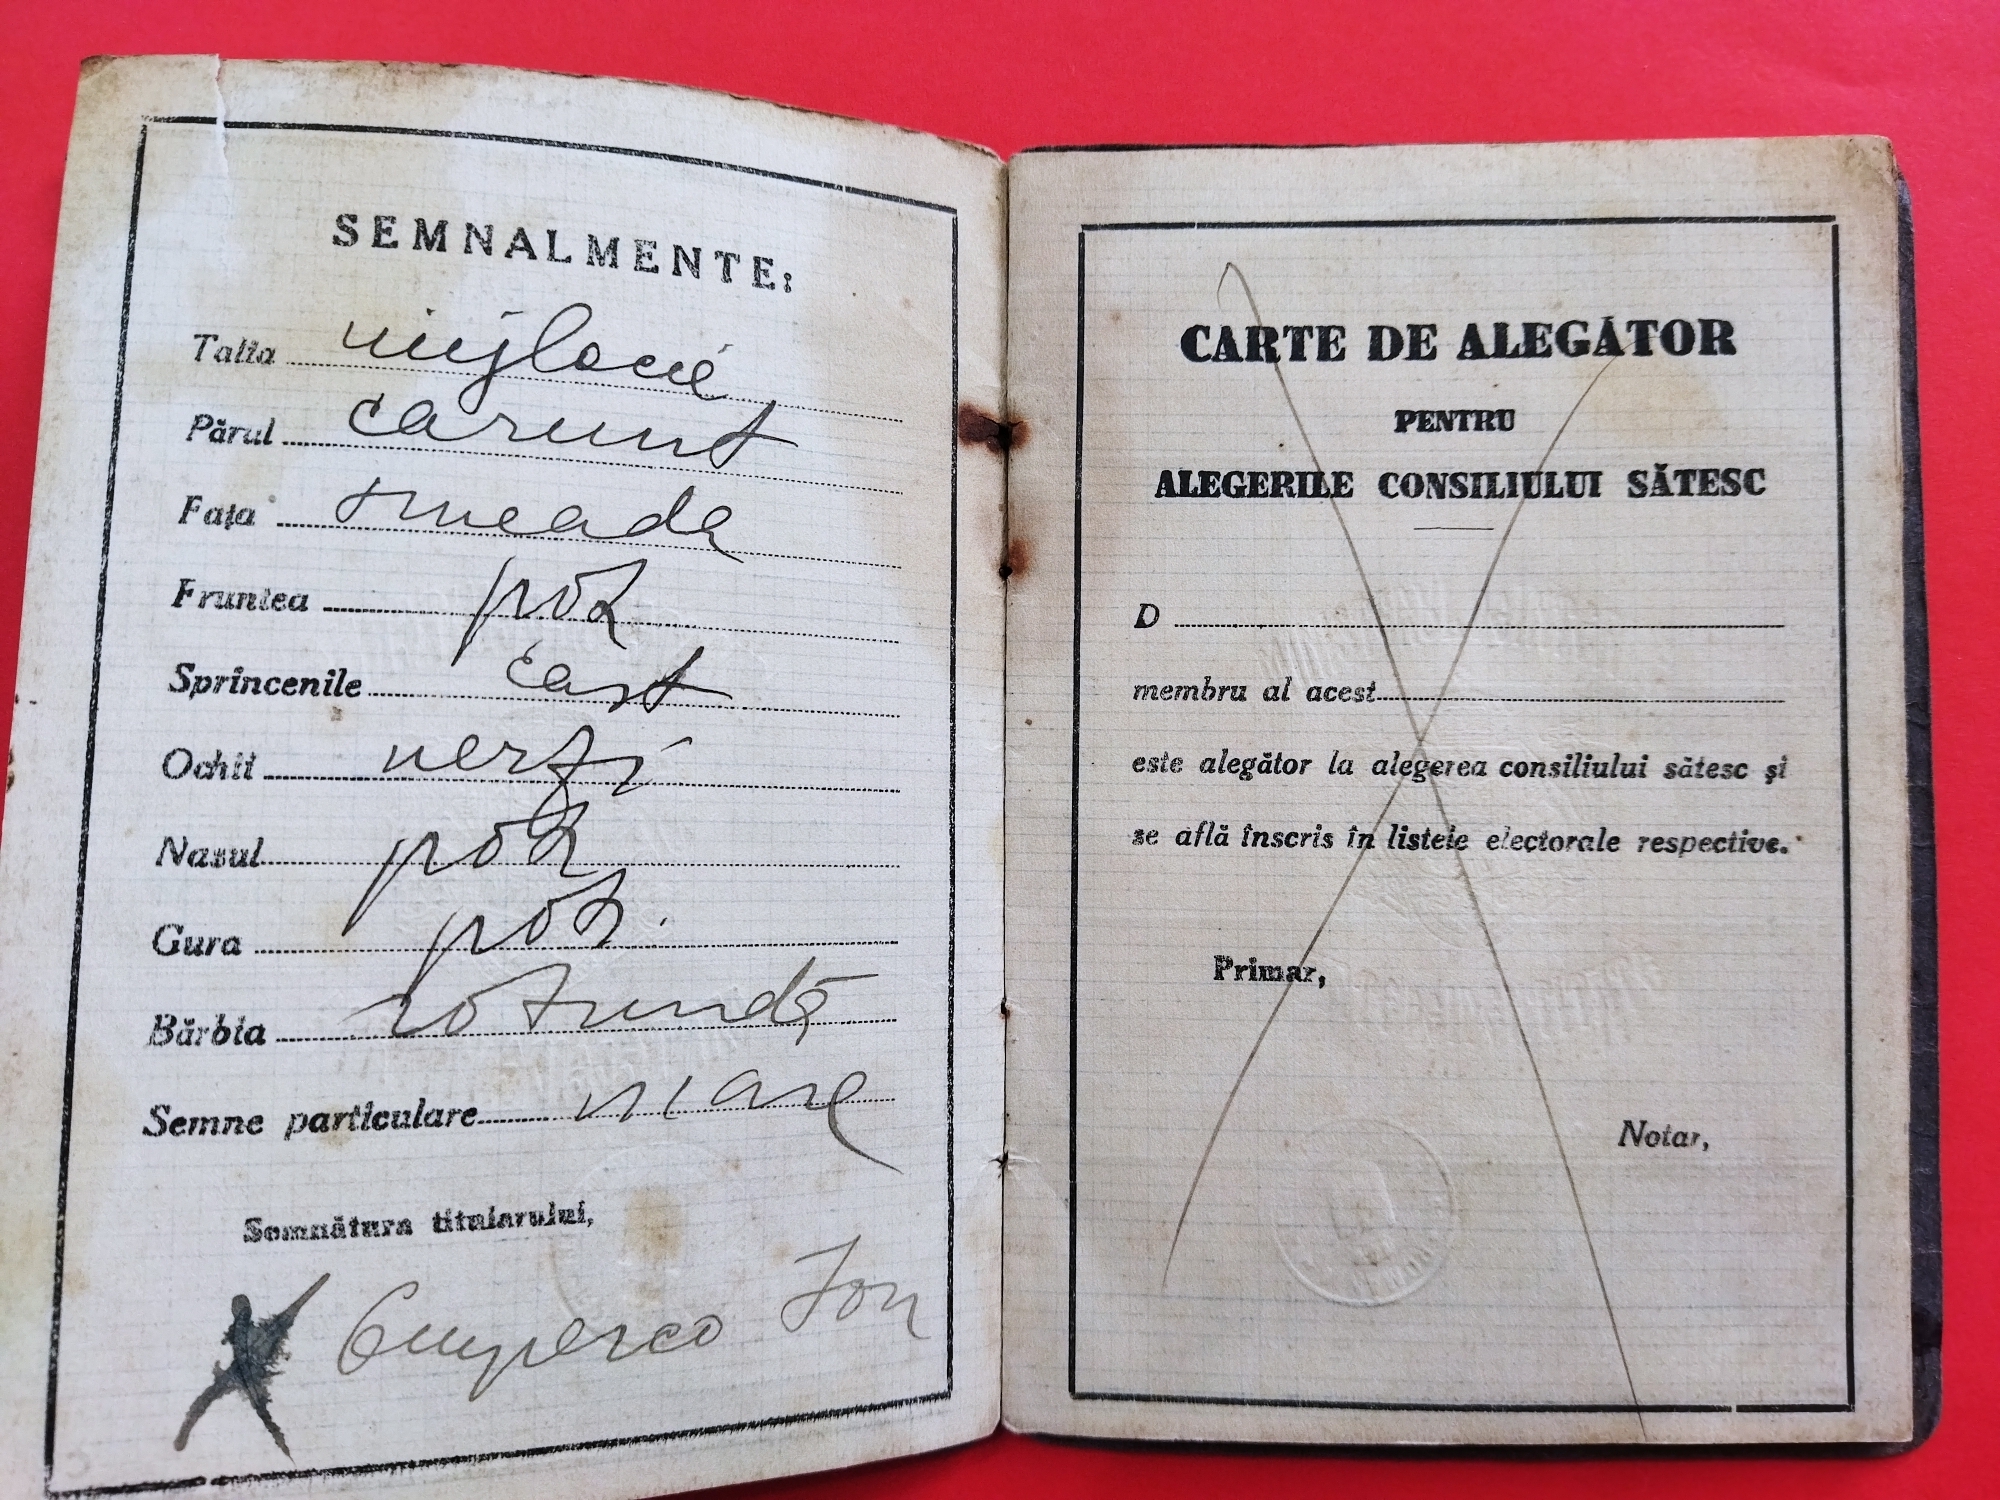 SEMNALMENTE:
Talia mijlocie
Părul carunt
Fața smeada
Fruntea potr
Sprincenile cast
Ochii verzi
Nasul potr
Gura potr.
Bărbia rotundă
Semne particulare n'are
Semnătura titularului,
Ion
CARTE DE ALEGĂTOR
PENTRU
ALEGERILE CONSILIULUI SĂTESC
D
membru al acest
este alegător la alegerea consiliului sătesc și
se află înscris în listele electorale respective.
Primar,
Notar,